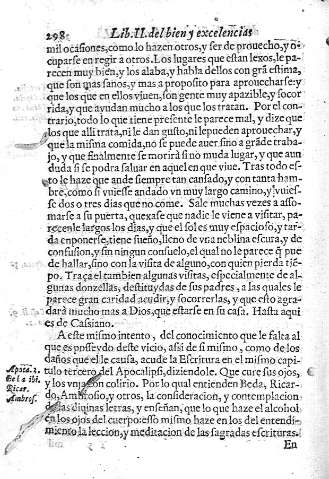 298 Lib. II. del bien y excelencias
mil ocasiones, como lo hazen otros, y ser de prouecho, y o-
cuparse en regir a otros. Los lugares que estan lexos, le pa-
recen muy bien, y los alaba, y habla dellos con grã estima,
que son mas sanos, y mas a proposito para aprouecharse: y
que los que en ellos viuen, son gente muy apazible, y socor
rida, y que ayudan mucho a los que los tratan. Por el con-
trario, todo lo que tiene presente le parece mal, y dize que
los que alli trata, ni le dan gusto, ni le pueden aprouechar, y
que la misma comida, no se puede auer sino a grãde traba-
jo, y que finalmente se morirá si no muda lugar, y que aun
duda si se podra saluar en aquel en que viue. Tras todo es-
to le haze que ande siempre tan cansado, y con tanta ham-
bre, como si vuiesse andado vn muy largo camino, y vuies-
se dos o tres dias que no come. Sale muchas vezes a asso-
marse a su puerta, quexase que nadie le viene a visitar, pa-
recenle largos los dias, y que el sol es muy espacioso, y tar-
da en ponerse, tiene sueño, lleno de vna neblina escura, y de
confusion, y sin ningun consuelo, el qual no le parece q̃ pue
de hallar, sino con la visita de alguno, con quien pierda tiẽ-
po. Traça el tambien algunas visitas, especialmente de al-
gunas donzellas, destituydas de sus padres, a las quales le
parece gran caridad acudir, y socorrerlas, y que esto agra-
dará mucho mas a Dios, que estarse en su casa. Hasta aqui
es de Cassiano.
A este mismo intento, del conocimiento que le falta al
que es posseydo deste vicio, assi de si mismo, como de los
daños que el le causa, acude la Escritura en el mismo capi-
Apoca. 3. tulo tercero del Apocalipsi, diziendole. Que cure sus ojos,
Be la ibi. y los vnja con colirio. Por lo qual entienden Beda, Ricar-
Ricar. do, Ambrosio, y otros, la consideracion, y contemplacion
Ambros. de las diuinas letras, y enseñan, que lo que haze el alcohol
en los ojos del cuerpo: esso mismo haze en los del entendi-
miento la leccion, y meditacion de las sagradas escrituras.
En